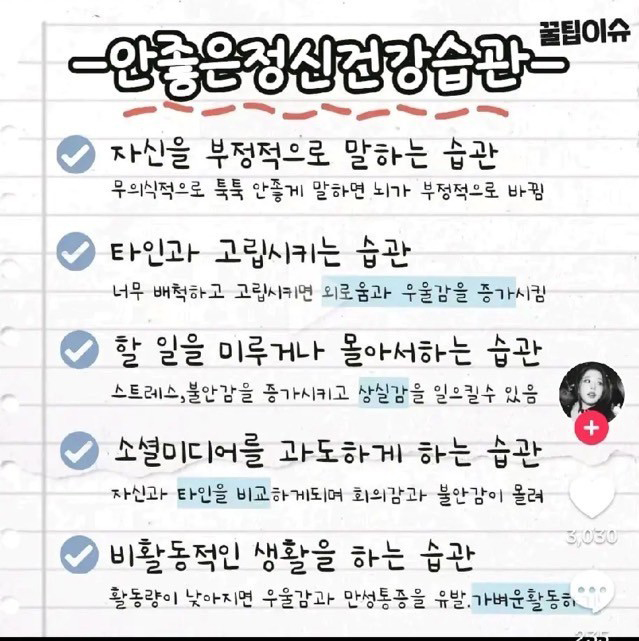 꿀팁이슈
안좋은정신건강습관
자신을 부정적으로 말하는 습관
무의식적으로 툭툭 안좋게 말하면 뇌가 부정적으로 바뀜
타인과 고립시키는 습관
너무 배척하고 고립시키면 외로움과 우울감을 증가시킴
할 일을 미루거나 몰아서하는 습관
스트레스,불안감을 증가시키고 상실감을 일으킬수 있음
소셜미디어를 과도하게 하는 습관
자신과 타인을 비교하게되며 회의감과 불안감이 몰려
3,030
비활동적인 생활을 하는 습관
활동량이 낮아지면 우울감과 만성통증을 유발.가벼운활동하
235